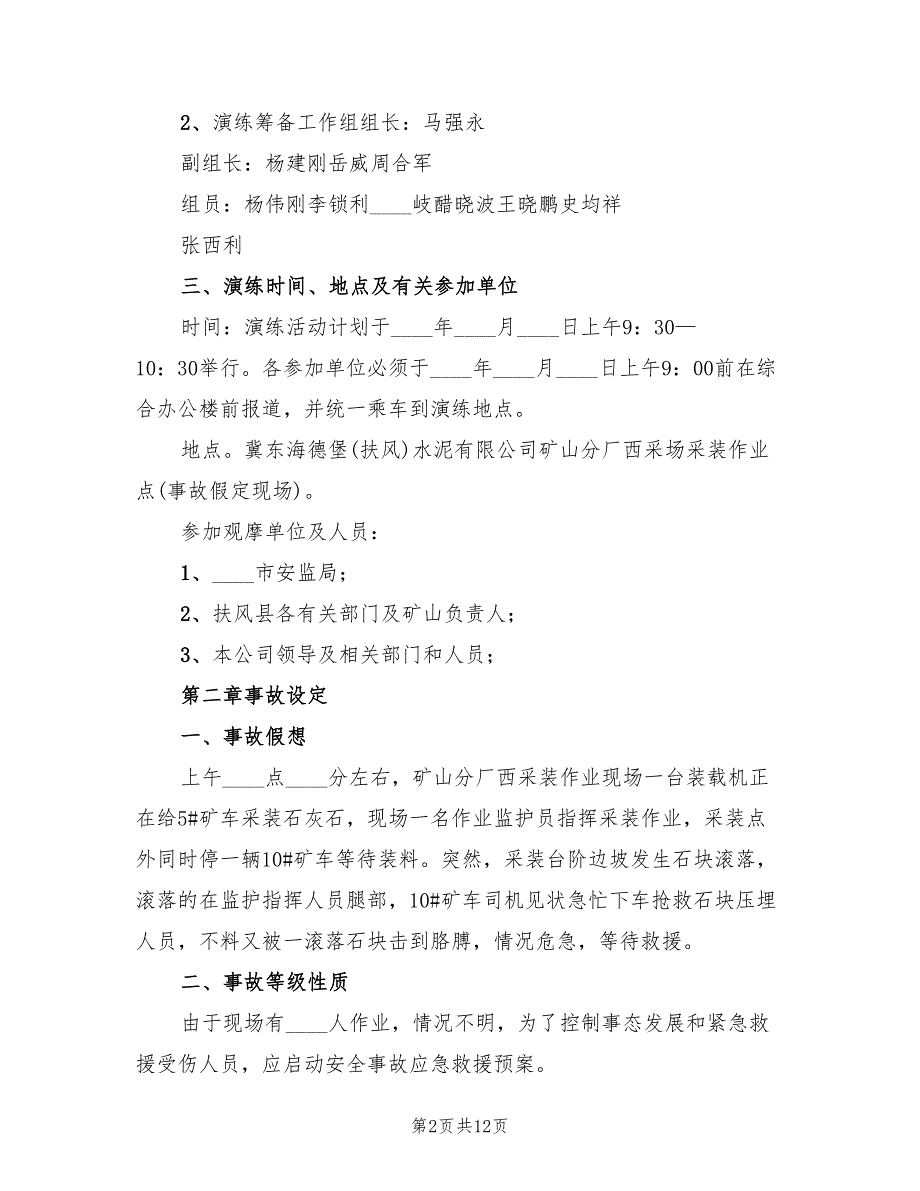 2、演练筹备工作组组长：马强永
副组长：杨建刚岳威周合军
组员：杨伟刚李锁利____岐醋晓波王晓鹏史均祥
张西利
三、演练时间、地点及有关参加单位
时间：演练活动计划于____年____月____日上午9：30—
10：30举行。各参加单位必须于____年____月____日上午9：00前在综
合办公楼前报道，并统一乘车到演练地点。
地点。冀东海德堡(扶风)水泥有限公司矿山分厂西采场采装作业
点(事故假定现场)。
参加观摩单位及人员：
1、____市安监局；
2、扶风县各有关部门及矿山负责人；
3、本公司领导及相关部门和人员；
第二章事故设定
一、事故假想
上午____点____分左右，矿山分厂西采装作业现场一台装载机正
在给5#矿车采装石灰石，现场一名作业监护员指挥采装作业，采装点
外同时停一辆10#矿车等待装料。突然，采装台阶边坡发生石块滚落，
滚落的在监护指挥人员腿部，10#矿车司机见状急忙下车抢救石块压埋
人员，不料又被一滚落石块击到胳膊，情况危急，等待救援。
二、事故等级性质
由于现场有____人作业，情况不明，为了控制事态发展和紧急救
援受伤人员，应启动安全事故应急救援预案。
第2页共12页